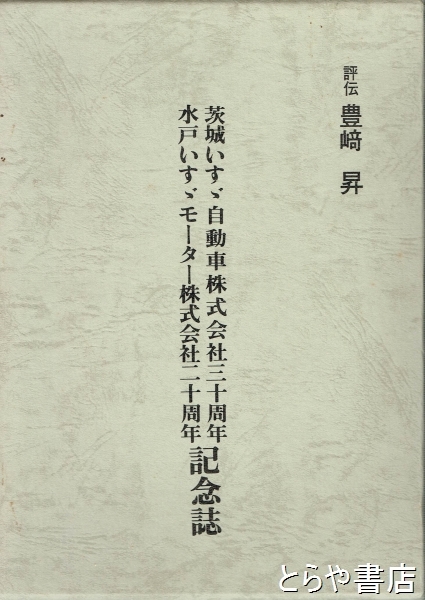 評伝 豊﨑 昇
茨城いすゞ自動車株式会社三十周年
水戸いすゞモーター株式会社二十周年
記念誌
とらや書店